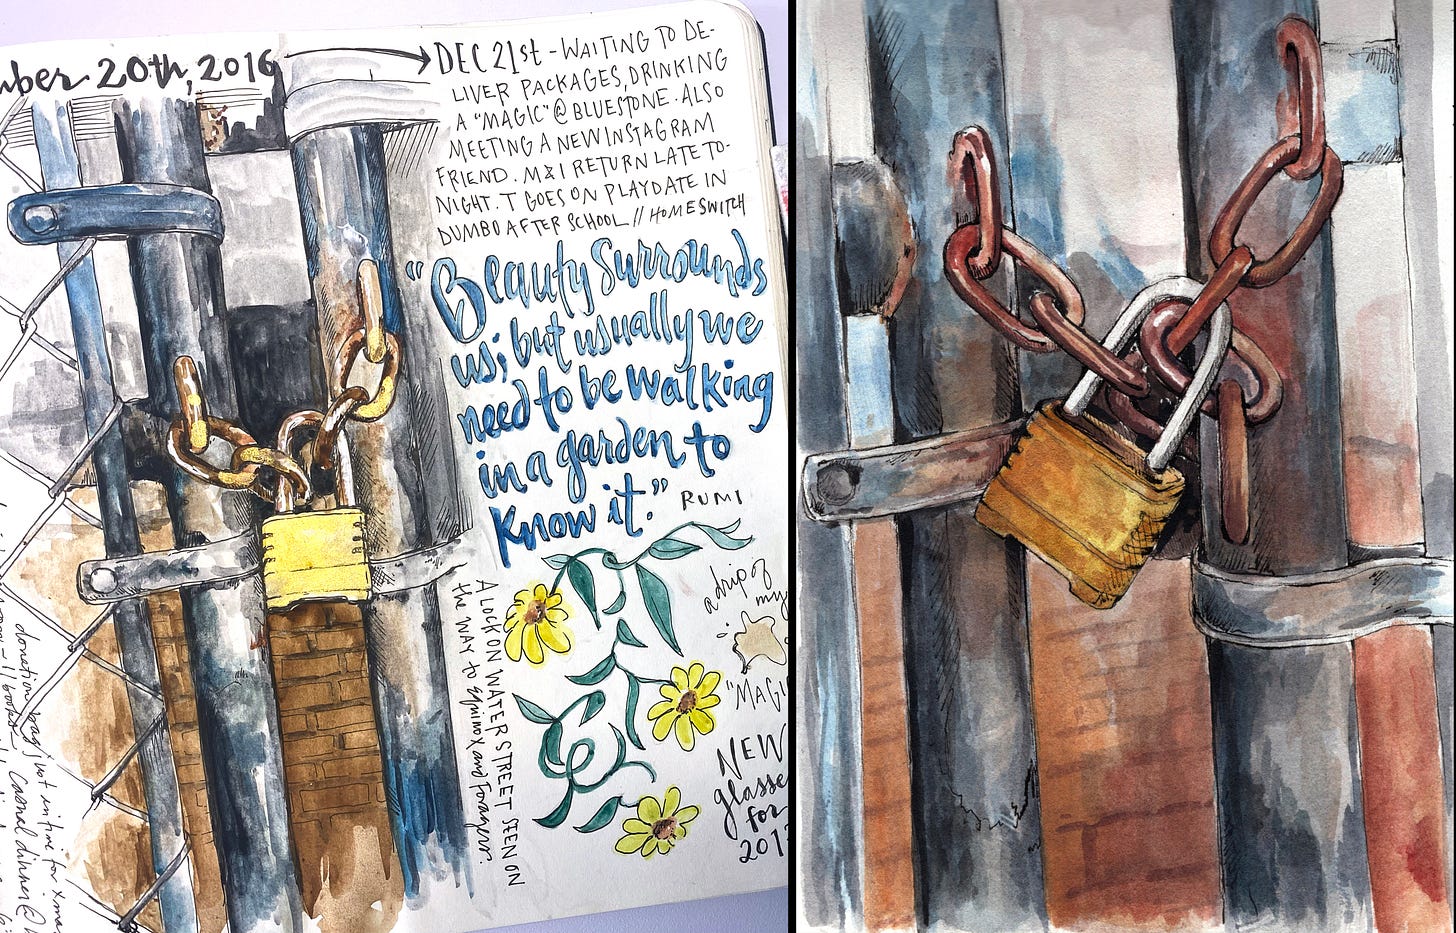 mber 20th, 2016
DEC 21st - WAITING TO DE-
LIVER PACKAGES, DRINKING
A "MAGIC" @ BLUESTONE. ALSO
MEETING A NEW INSTAGRAM
FRIEND. M & I RETURN LATE TO-
NIGHT. T GOES ON PLAYDATE IN
DUMBO AFTER SCHOOL // HOMESWITCH
"Beauty Surrounds
us; but usually we
need to be walking
in a garden to
know it." RUMI
A LOCK ON WATER STREET SEEN ON
the WAY to Equinox and Foragers.
a drip of
my
"MAGI
NEW
glasse
for
2017
donation bag just in time for xmas
casual dinner @